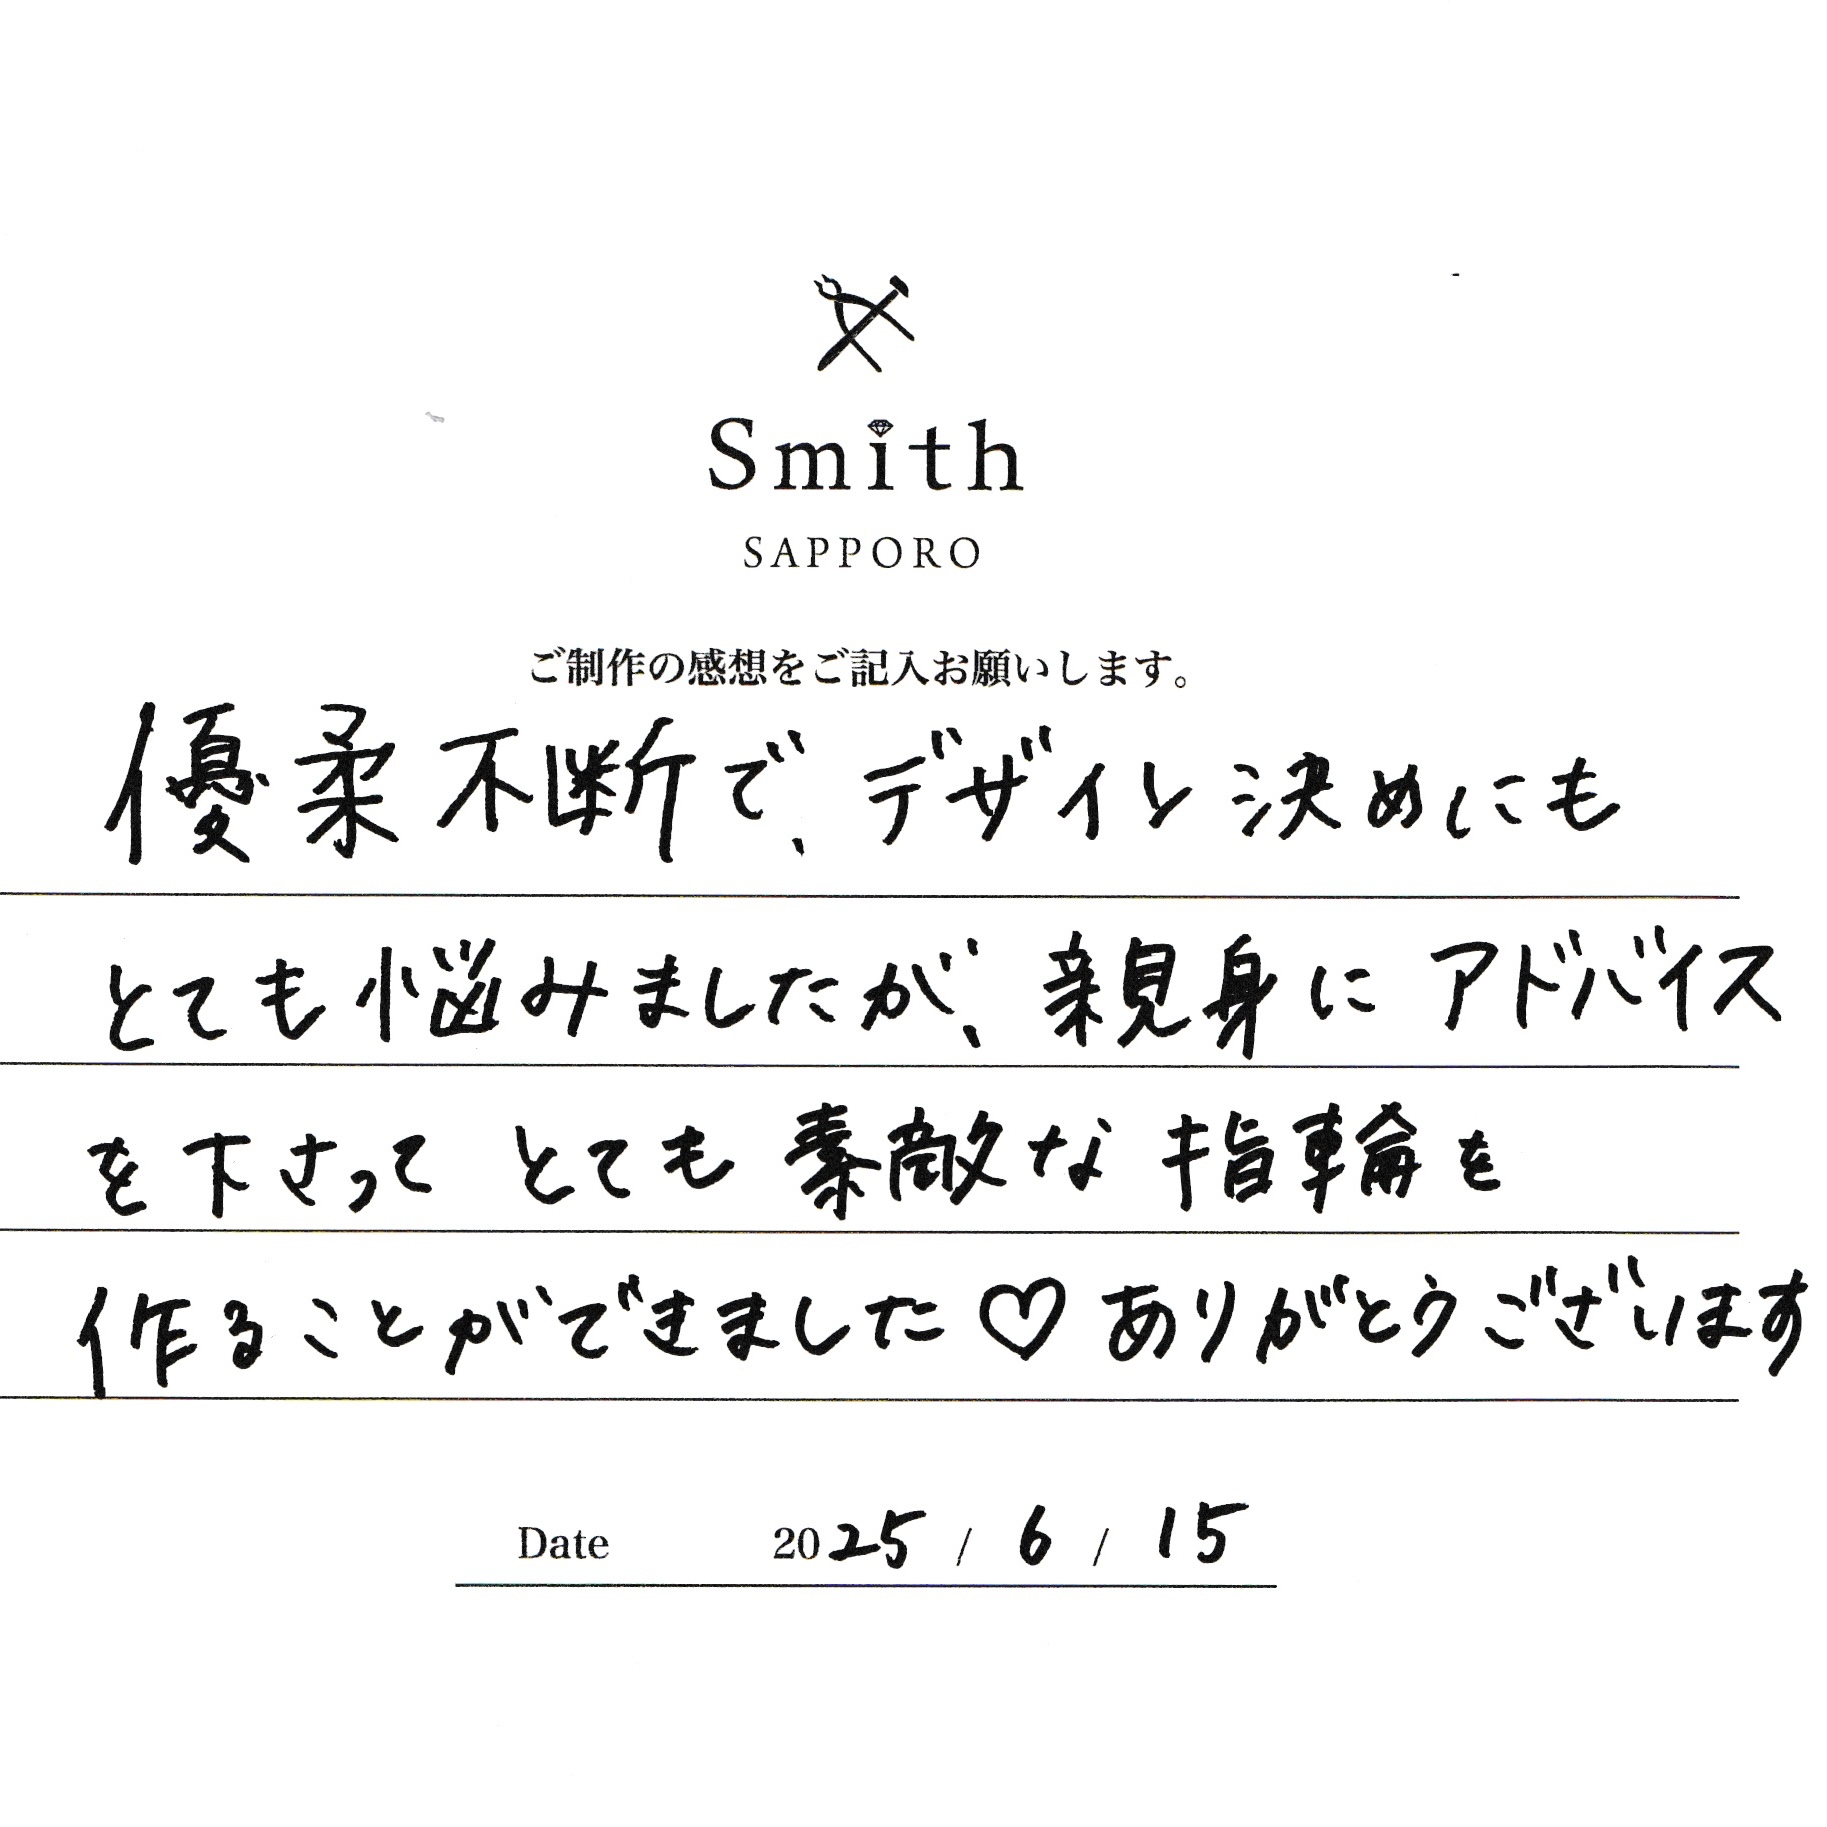 Smith
SAPPORO
ご制作の感想をご記入お願いします。
優柔不断で、デザイン決めにも
とても悩みましたが、親身にアドバイス
を下さって とても素敵な指輪を
作ることができました♡ありがとうございます
Date 2025 / 6 / 15